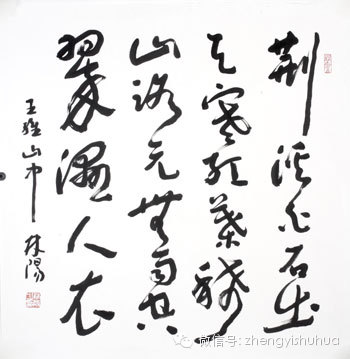 荆溪白石出
天寒紅葉稀
山路元無雨空
翠濕人衣
王維山中 林陽
微信号: zhengyishuhua